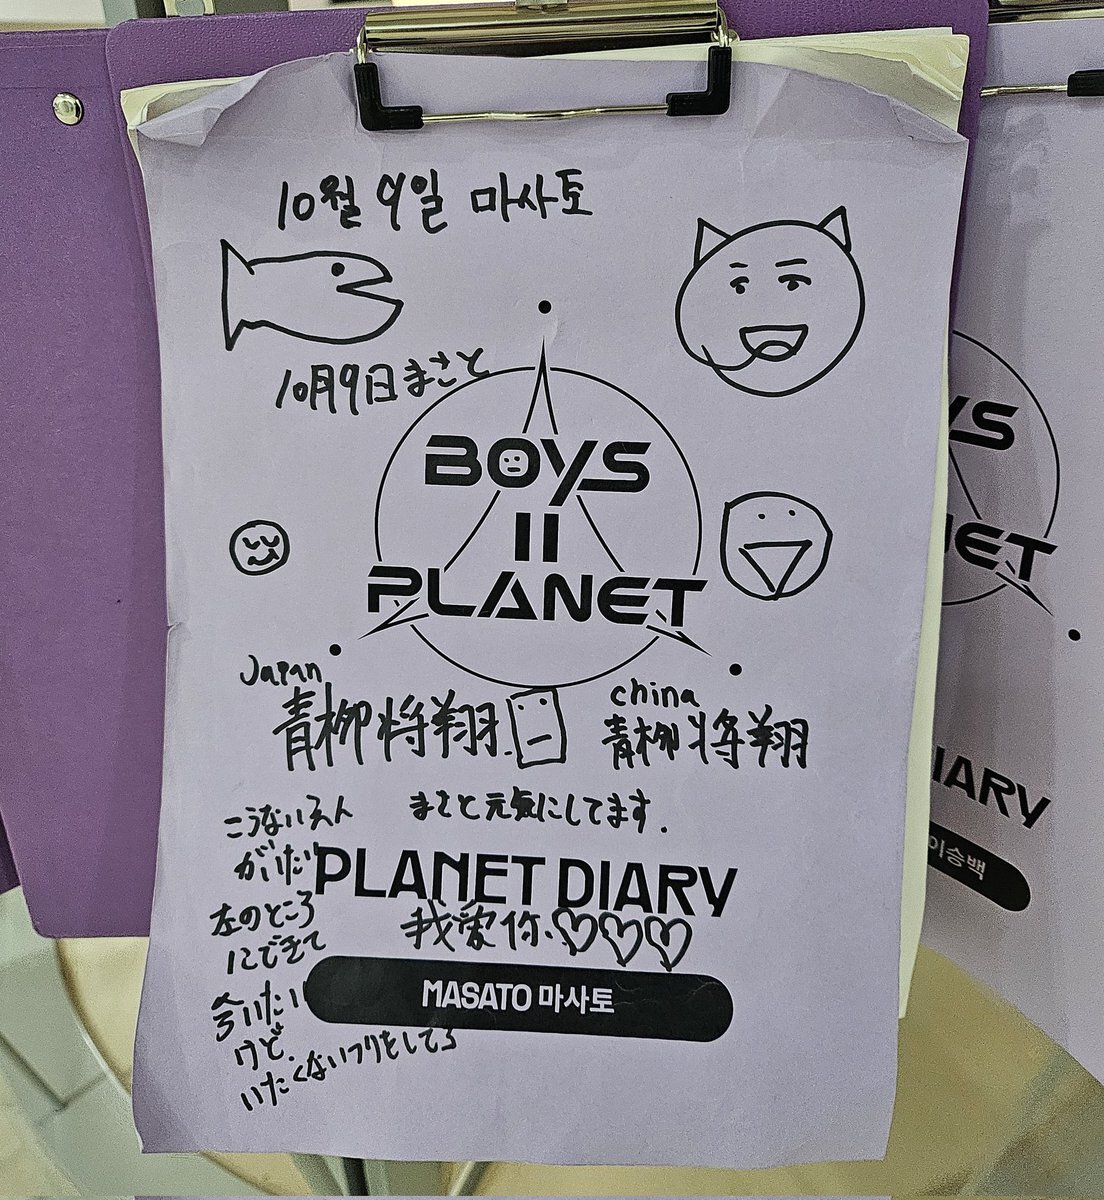 10월 9일 마사토
10月9日まさと
BOYS
II
PLANET
Japan
青柳将翔.
china
青柳将翔
まさと元気にしてます.
こうないえん
がいたい
左のところ
にできて
今いたい
けど.
いたくないフリをしてる
PLANET DIARY
我爱你.
MASATO 마사토
YS
NET
IARY
이승백